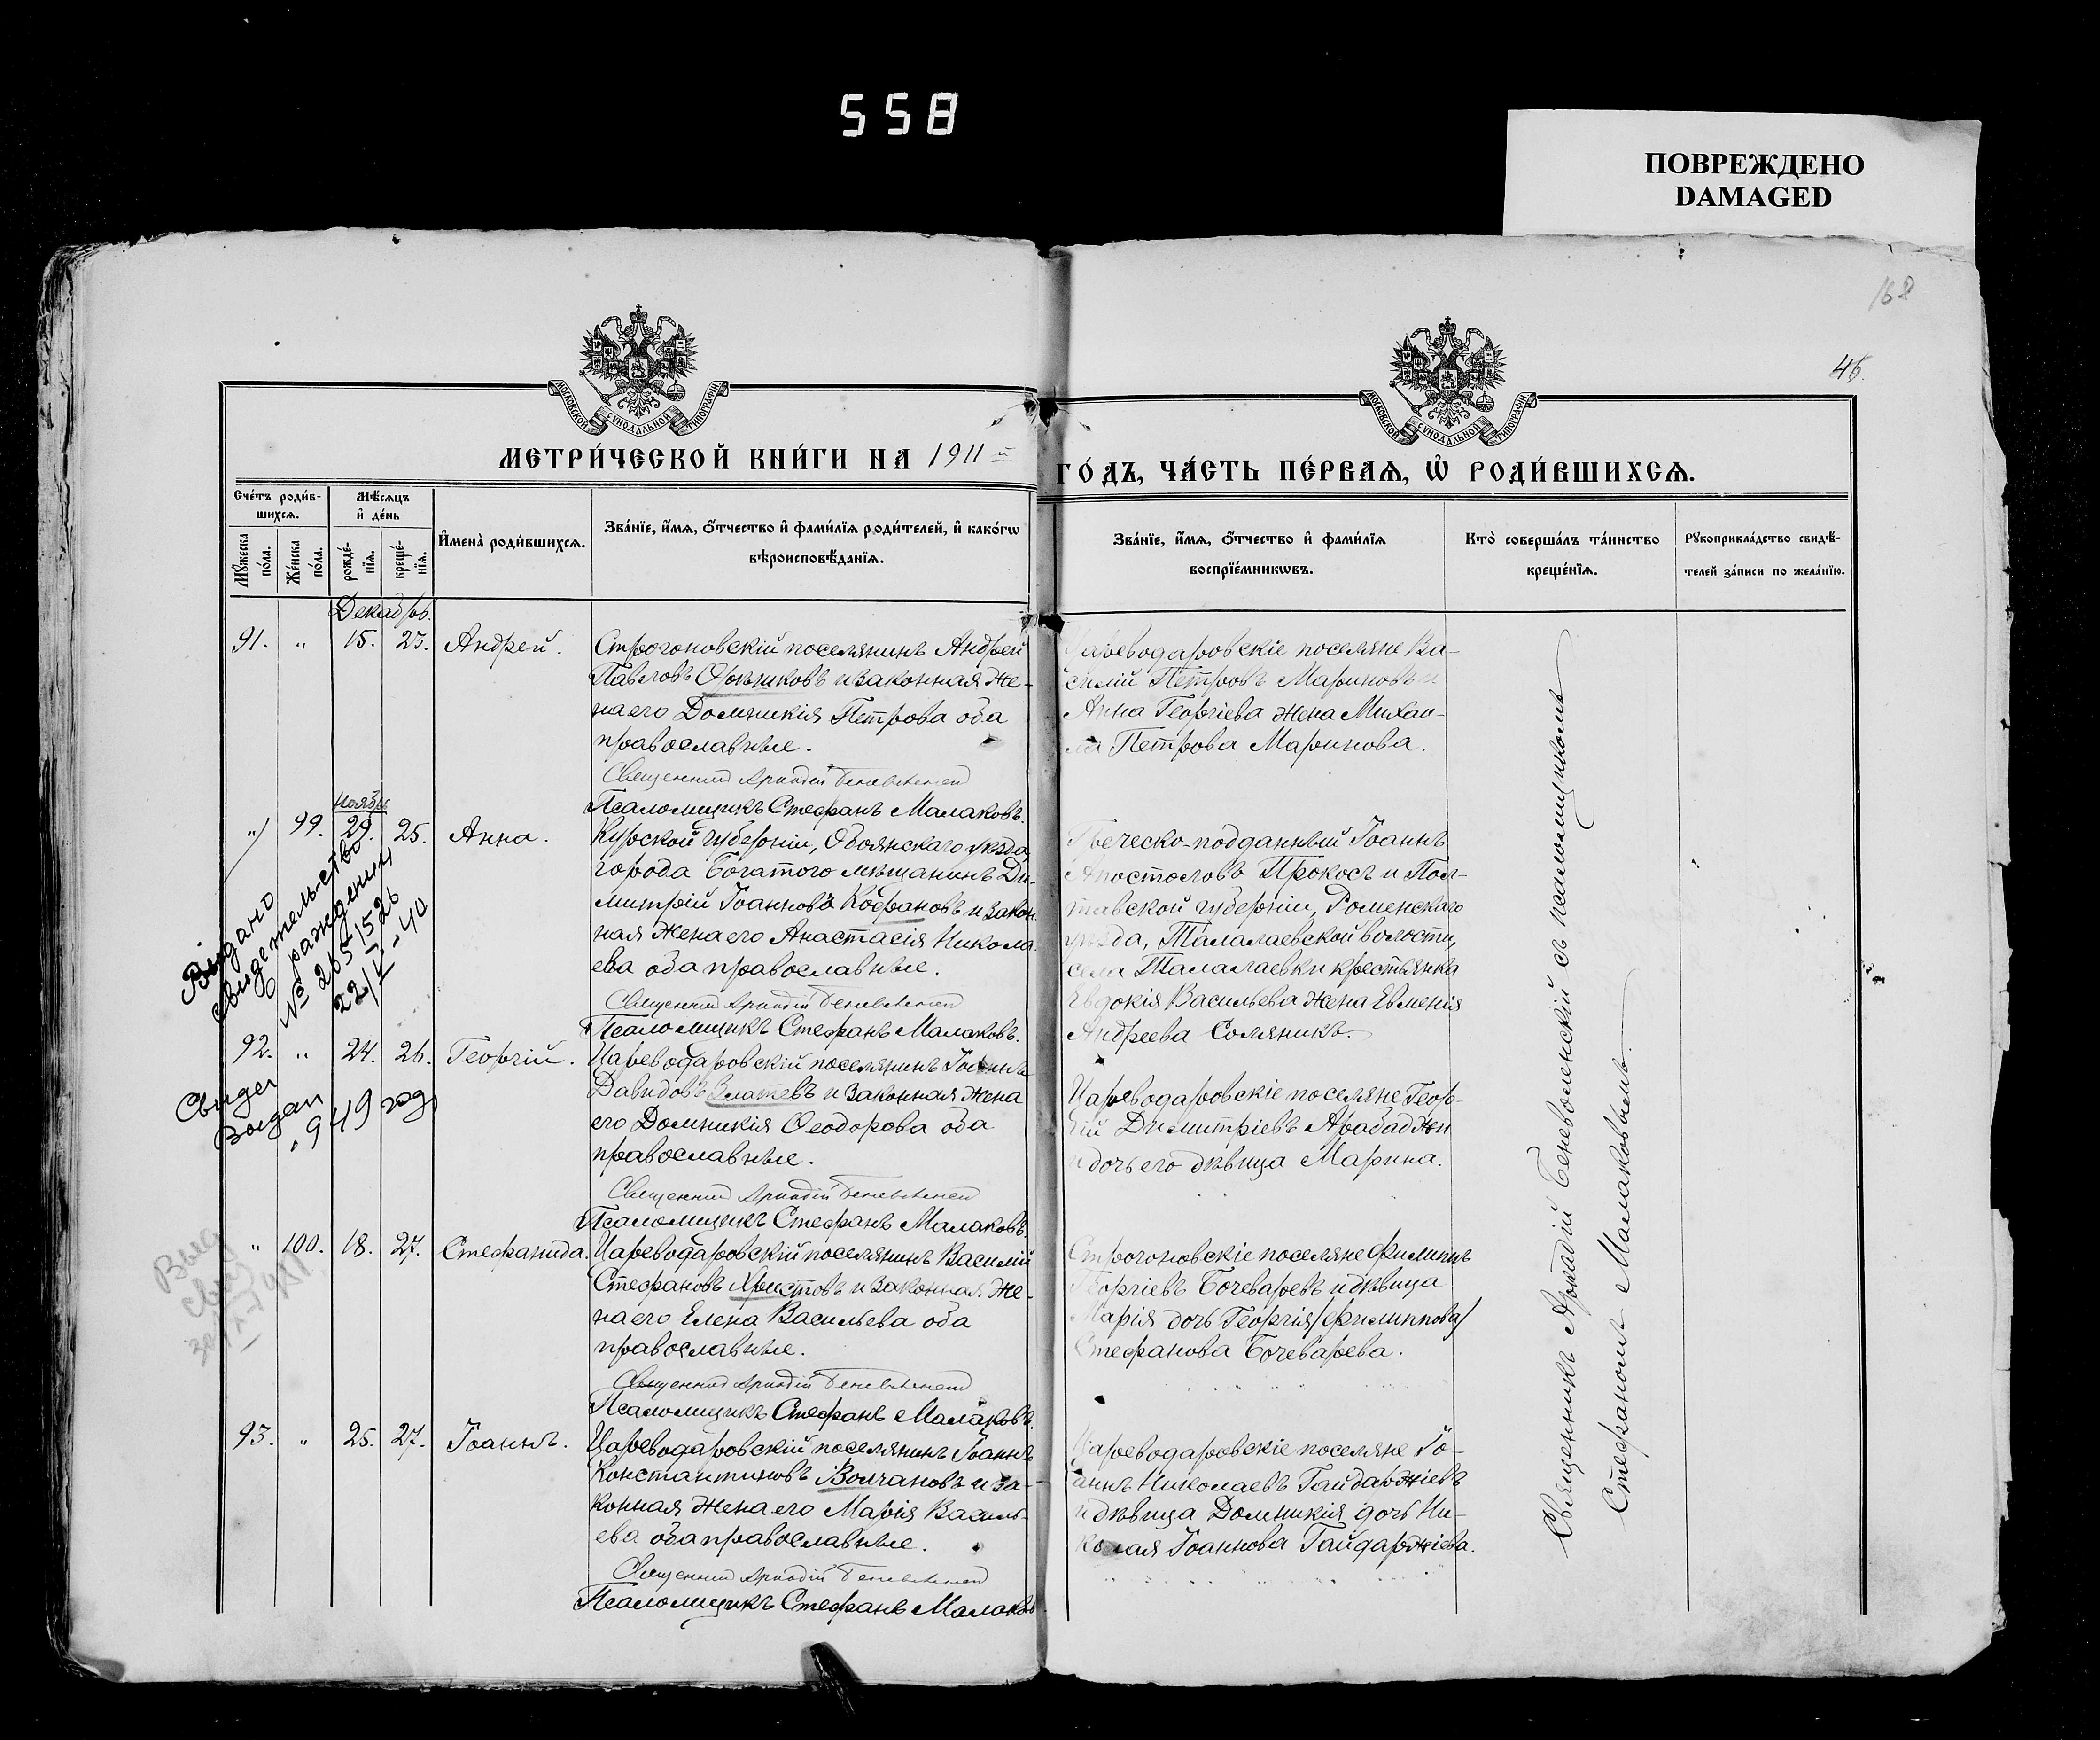 558
ПОВРЕЖДЕНО
DAMAGED
168
46.
МОСКОВСКОЙ СѴНОДАЛЬНОЙ ТИПОГРАФІИ
МОСКОВСКОЙ СѴНОДАЛЬНОЙ ТИПОГРАФІИ
МЕТРИ́ЧЕСКОЙ КНИ́ГИ НА 1911й
ГО́ДЪ, ЧА́СТЬ ПЕ́РВАѦ, Ѡ҆ РОДИ́ВШИХСѦ.
Сче́тъ роди́в-
шихсѧ.
Мѣ́сѧцъ
и҆ де́нь
Мꙋ́жеска
по́ла.
Же́нска
по́ла.
рожде́-
нїѧ.
креще́-
нїѧ.
И҆мена̀ роди́вшихсѧ.
Зва́нїе, и҆́мѧ, ѻ҆́тчество и҆ фами́лїѧ роди́телей, и҆ како́гѡ
вѣроисповѣ́данїѧ.
Зва́нїе, и҆́мѧ, ѻ҆́тчество и҆ фами́лїѧ
воспрїе́мникѡвъ.
Кто̀ соверша́лъ та́инство
креще́нїѧ.
Рꙋкоприкла́дство свидѣ́-
телей за́писи по жела́нїю.
Декабрь.
91. " 15. 23. Андрей.
Строгоновскій поселянинъ Андрей
Павловъ Орѣшковъ и законная же-
на его Домникія Петрова оба
православные.
Священникъ Аркадій Беневоленскій
Псаломщикъ Стефанъ Малаковъ.
Цареводаровскіе поселяне Ва-
силій Петровъ Мариновъ и
Анна Георгіева жена Михаи-
ла Петрова Маринова.
Ноябрь
" 99. 29. 25. Анна.
Курской губерніи, Обоянскаго уѣзда,
города Богатого мѣщанинъ Ди-
митрій Іоанновъ Кофановъ и закон
ная жена его Анастасія Никола-
ева оба православные.
Священникъ Аркадій Беневоленскій
Псаломщикъ Стефанъ Малаковъ.
Греческо-подданный Іоаннъ
Апостоловъ Прокосъ и Пол-
тавской губерніи, Роменскаго
уѣзда, Талалаевской волости,
села Талалаевки крестьянка
Евдокія Васильева жена Евменія
Андреева Соляникъ.
Видано
свидетельство
о рождении
№ 265152
22/V-40
92. " 24. 26. Георгій.
Цареводаровскій поселянинъ Іоаннъ
Давидовъ Златевъ и законная жена
его Домникія Ѳеодорова оба
православные.
Священникъ Аркадій Беневоленскій
Псаломщикъ Стефанъ Малаковъ.
Цареводаровскіе поселяне Геор-
гій Димитріевъ Арабаджи
и дочь его дѣвица Марина.
Свидет
Выдан
1949 год
" 100. 18. 27. Стефанида.
Цареводаровскій поселянинъ Василій
Стефановъ Христовъ и законная же-
на его Елена Васильева оба
православные.
Священникъ Аркадій Беневоленскій
Псаломщикъ Стефанъ Малаковъ.
Строгоновскіе поселяне Филиппъ
Георгіевъ Бочеваревъ и дѣвица
Марія дочь Георгія /Филиппова/
Стефанова Бочеварева.
93. " 25. 27. Іоаннъ.
Цареводаровскій поселянинъ Іоаннъ
Константиновъ Волчановъ и за-
конная жена его Марія Василь-
ева оба православные.
Священникъ Аркадій Беневоленскій
Псаломщикъ Стефанъ Малаковъ
Цареводаровскіе поселяне Іо-
аннъ Николаевъ Гайдаржіевъ
и дѣвица Домникія дочь Ни-
колая Іоаннова Гайдаржіева.
Священникъ Аркадій Беневоленскій съ псаломщикомъ
Стефаномъ Малаковымъ.